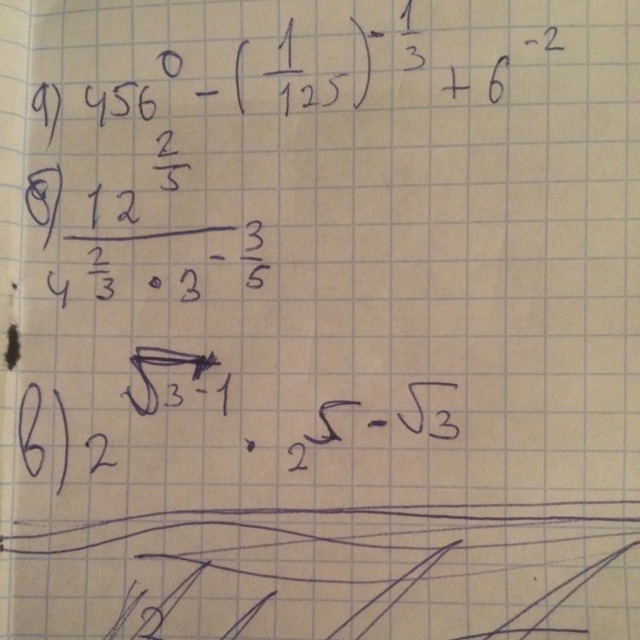 а) 456⁰ − (1/125)^(−1/3) + 6^(−2)
б) 12^(2/5) / (4^(2/3) · 3^(−3/5))
в) 2^(√3−1) · 2^(5−√3)